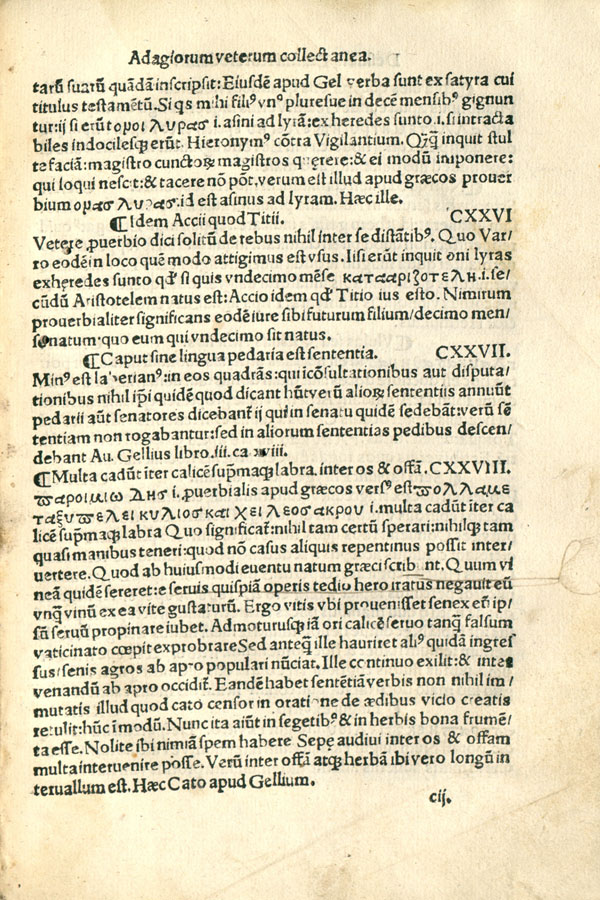 Adagiorum veterum collectanea.
tarū suarū quādā inscripsit: Eiusdē apud Gel verba sunt ex satyra cui
titulus testamētū. Si qs mihi filiꝰ vnꝰ pluresue in decē mensibꝰ gignun
tur: ij si erūt ομοι λυρασ i. asini ad lyrā: exheredes sunto .i. si intracta
biles indocilesqꝫ erūt. Hieronymꝰ cōtra Vigilantium. Qꝫqꝫ inquit stul
te faciā: magistro cunctoꝝ magistros querere: & ei modū imponere:
qui loqui nescit: & tacere nō pōt, verum est illud apud græcos prouer
bium ομοσ λυρασ. id est asinus ad lyram. Hæc ille.
¶ Idem Accii quod Titii. CXXVI
Vetere ꝓuerbio dici solitū de rebus nihil inter se distātibꝰ. Quo Var/
ro eodē in loco quē modo attigimus est vsus. Ii si erūt inquit oni lyras
exheredes sunto qd' si quis vndecimo mēse καταριζοτελη .i. se/
cūdū Aristotelem natus est: Accio idem qd' Titio ius esto. Nimirum
prouerbialiter significans eodē iure sibi futurum filium/decimo men/
se natum· quo eum qui vndecimo sit natus.
¶ Caput sine lingua pedaria est sententia. CXXVII.
Minꝰ est laberianꝰ: in eos quadrās: qui icōsultationibus aut disputa/
tionibus nihil ip̄i quidē quod dicant hūt verū alioꝝ sententiis annuūt
pedarii aūt senatores dicebant̄ ij qui in senatu quidē sedebāt: verū sē
tentiam non rogabantur: sed in aliorum sententias pedibus descen/
debant Au. Gellius libro .iii. ca xviii.
¶ Multa cadūt iter calicē sup̄maqꝫ labra. inter os & offā. CXXVIII.
παροιμιω Δησ i. ꝓuerbialis apud græcos versꝰ est πολλα με
ταξυ πελει κυλιοσ και χειλεοσ ακρου i. multa cadūt iter ca
licē sup̄maqꝫ labra Quo significat̄: nihil tam certū sperari: nihilqꝫ tam
quasi manibus teneri: quod nō casus aliquis repentinus possit inter/
uertere. Quod ab huiusmodi euentu natum græci scrib nt. Quum vi
neā quidē sereret: e seruis quispiā operis tedio hero iratus negauit eū
vnqꝫ vinū ex ea vite gustaturū. Ergo vitis vbi prouenisset senex eū ip/
sū seruū propinare iubet. Admoturusqꝫ iā ori calicē seruo tanqꝫ falsum
vaticinato cœpit exprobrare Sed anteqꝫ ille hauriret aliꝰ quidā ingres
sus/senis agros ab apro populari nūciat. Ille continuo exilit: & inter
venandū ab apro occidit̄. Eandē habet sentētiā verbis non nihil im/
mutatis illud quod cato censor in oratione de ædibus vicio creatis
retulit: hūc ī modū. Nunc ita aiūt in segetibꝰ & in herbis bona frumē/
ta esse. Nolite ibi nimiā spem habere Sepe audiui inter os & offam
multa interuenire posse. Verū inter offā atqꝫ herbā ibi vero longū in
teruallum est. Hæc Cato apud Gellium.
cij.